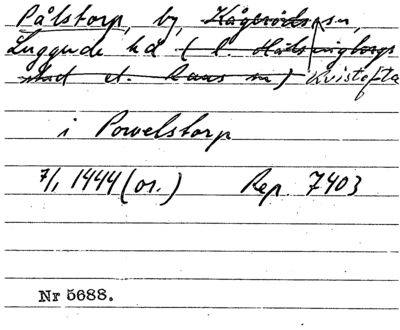 Pålstorp, by, Kågeröds sn,
Luggude hd (l. Hälsingborgs
stad el. Raus sn) Kvistofta
i Powelstorp
7/1 1444 (or.) Rep 7403
Nr 5688.